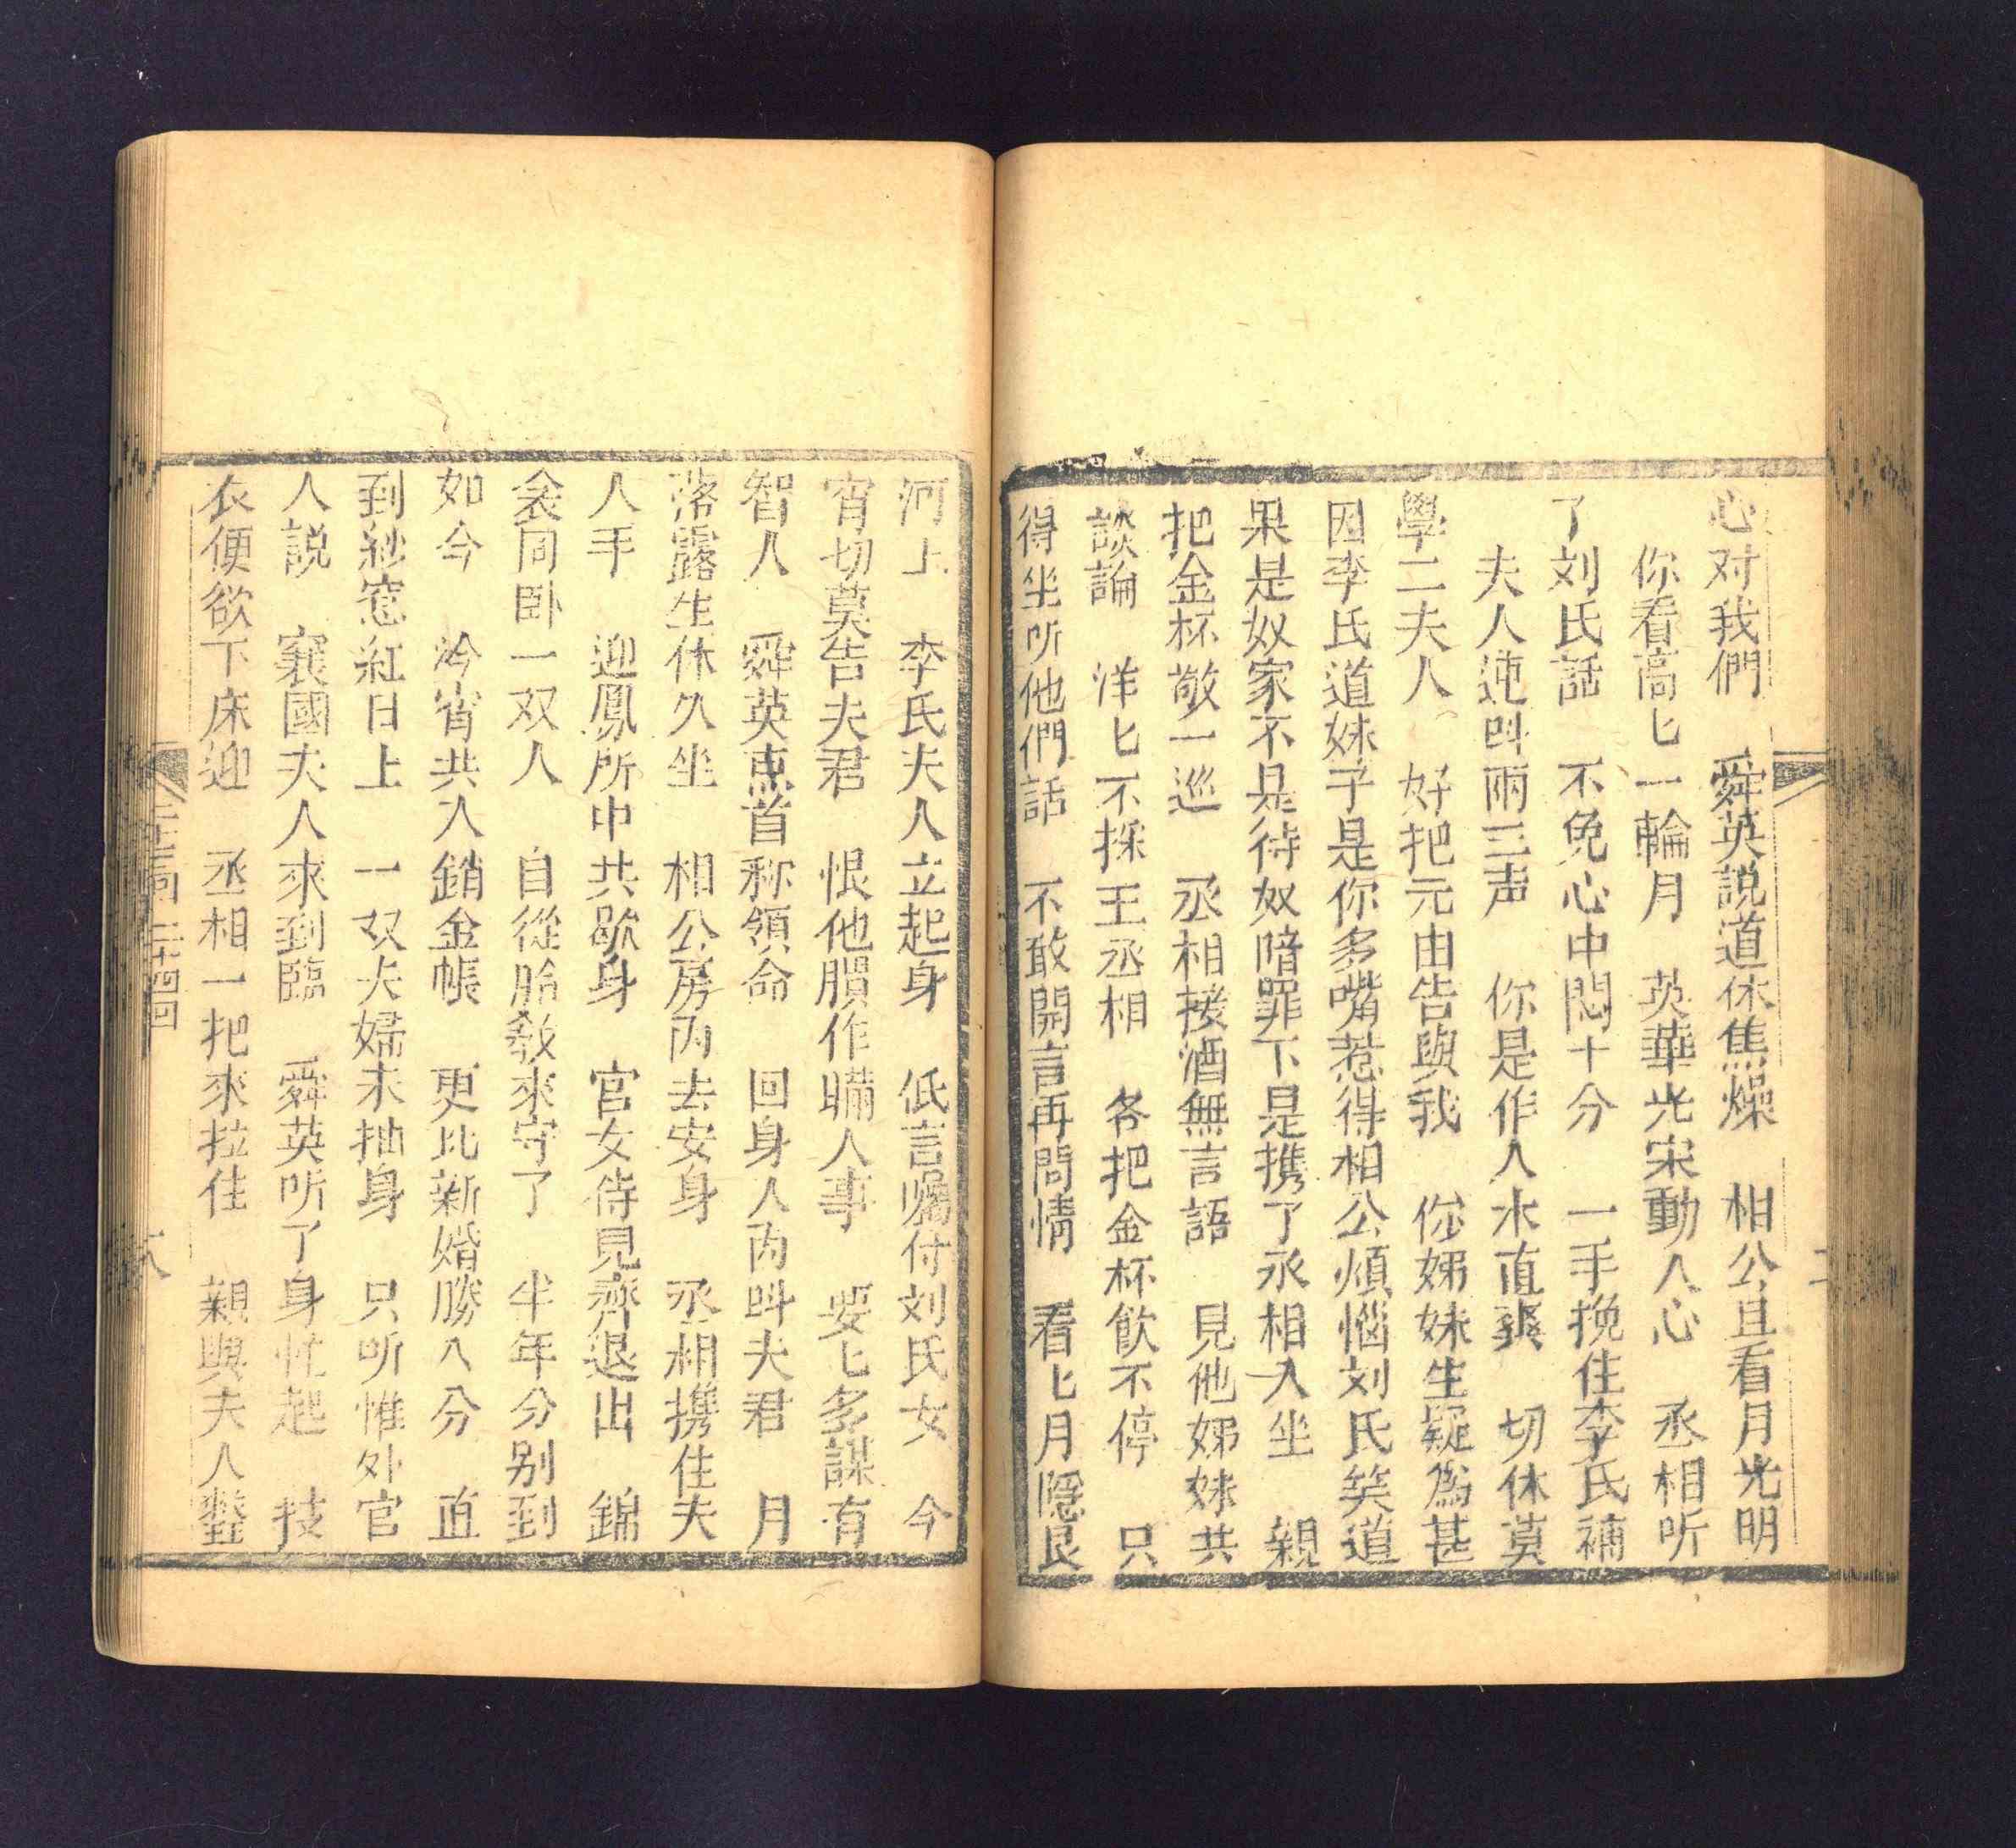 心对我們　舜英説道休焦燥　相公且看月光明
你看高匕一輪月　英華光宋動人心　丞相听
了刘氏話　不免心中悶十分　一手挽住李氏補
夫人連叫兩三声　你是作人水直爽　切休莫
學二夫人　好把元由告與我　你娣妹生疑為甚
因李氏道妹子是你多嘴惹得相公煩惱刘氏笑道
果是奴家不是待奴陪罪下是携了丞相入坐　親
把金杯敬一巡　丞相接酒無言語　見他娣妹共
談論　洋匕不採王丞相　各把金杯飲不停　只
得坐听他們話　不敢開言再問情　看匕月隱艮
河上　李氏夫人立起身　低言嘱付刘氏女　今
宵切莫告夫君　恨他膶作瞞人事　要匕多謀有
智人　舜英点首称領命　回身人内叫夫君　月
落露生休久坐　相公房内去安身　丞相携住夫
人手　迎鳳所中共歇身　官女待見齊退出　錦
衾同卧一双人　自從胎教來守了　半年分别到
如今　今宵共入銷金帳　更比新婚勝八分　直
到紗窓紅日上　一双夫婦未抽身　只听惟外官
人説　襄國夫人來到臨　舜英听了身忙起　技
衣便欲下床迎　丞相一把來拉住　親與夫人整